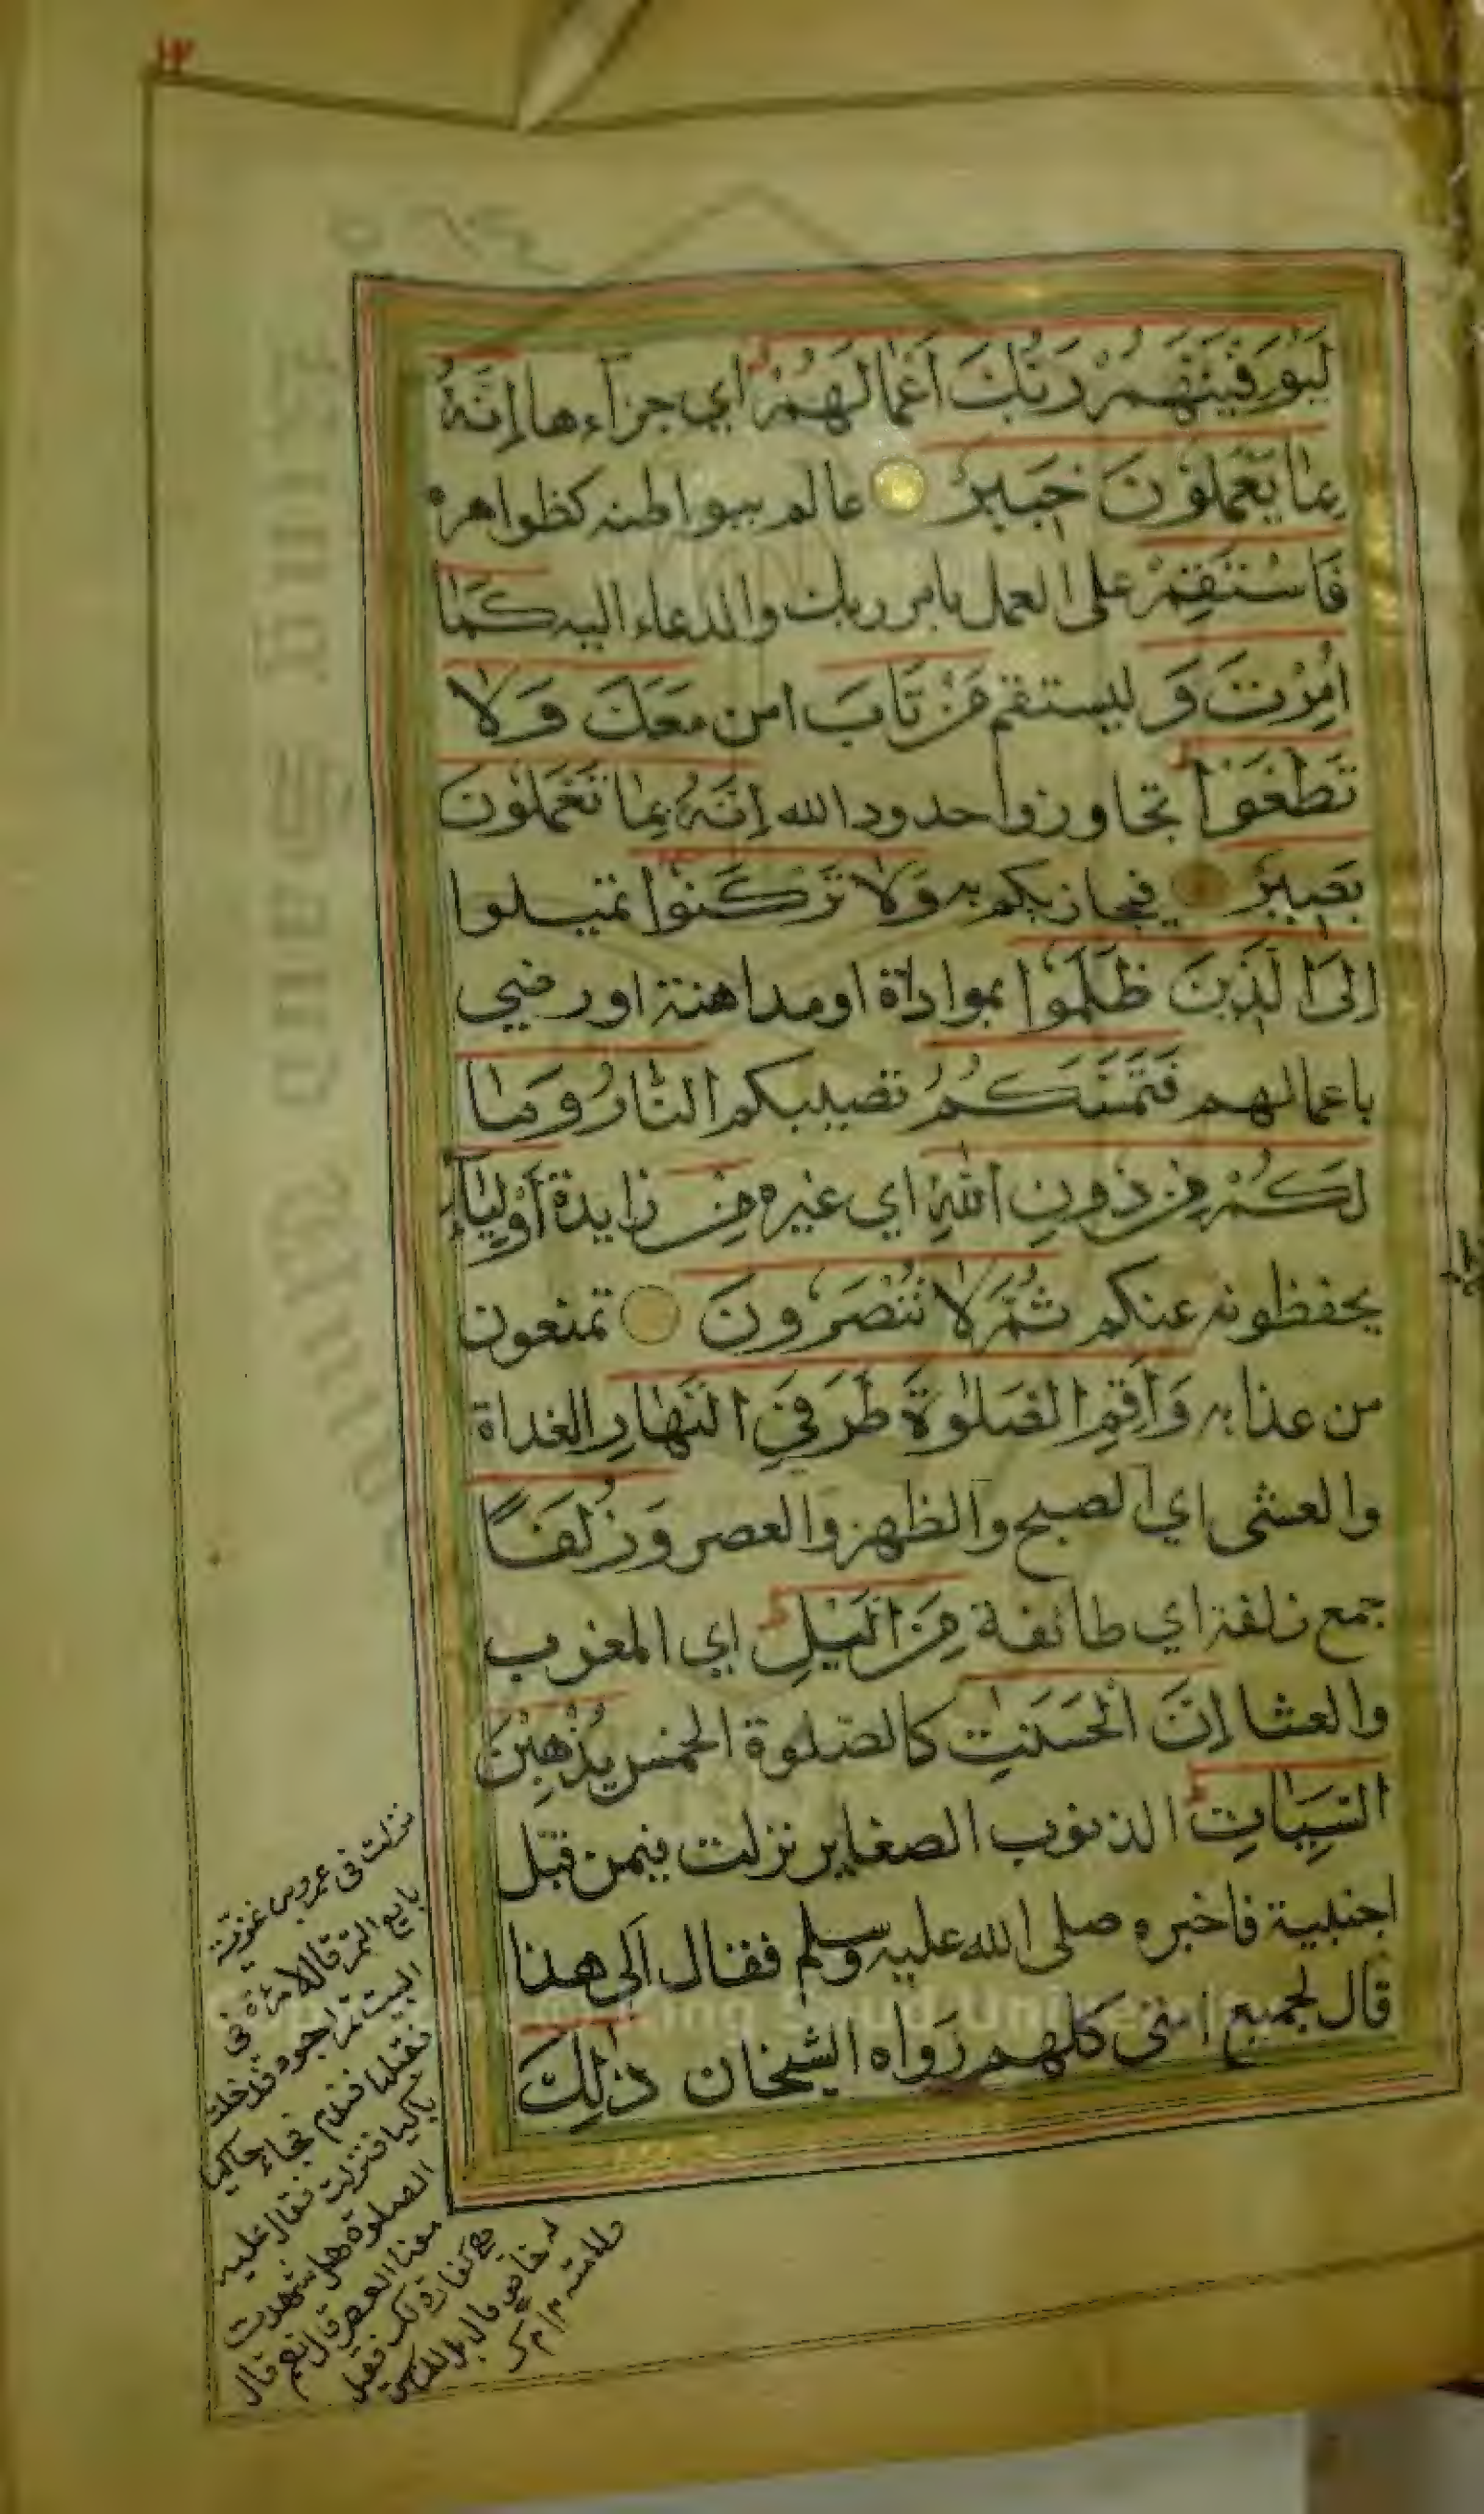 ١٣
لَيُوَفِّيَنَّهُمْ رَبُّكَ اَعْمَالَهُمْ اي جزآءها اِنَّهُ
بِمَا يَعْمَلُوْنَ خَبِيرٌ عالم ببواطنه كظواهره
فَاسْتَقِمْ على العمل بامر ربك والدعاء اليه كَمَا
اُمِرْتَ وَ ليستقم مَنْ تَابَ امن مَعَكَ وَلَا
تَطْغَوْا تجاوزوا حدود الله اِنَّهُ بِمَا تَعْمَلُوْنَ
بَصِيرٌ فيجازيكم به وَلَا تَرْكَنُوا تميلوا
اِلَى الَّذِينَ ظَلَمُوا بموادة او مداهنة او رضي
باعمالهم فَتَمَسَّكُمُ تصيبكم النَّارُ وَمَا
لَكُمْ مِنْ دُونِ اللهِ اي غيره مِنْ زايدة اَوْلِيَآءَ
يحفظونه عنكم ثُمَّ لَا تُنْصَرُونَ تمنعون
من عذابه وَاَقِمِ الصَّلٰوةَ طَرَفَيِ النَّهَارِ الغداة
والعشى اي الصبح والظهر والعصر وَزُلَفًا
جمع زلفة اي طائفة مِنَ الَّيْلِ اي المغرب
والعشا اِنَّ الْحَسَنٰتِ كالصلوة الخمس يُذْهِبْنَ
السَّيِّاٰتِ الذنوب الصغاير نزلت فيمن قبل
اجنبية فاخبره صلى الله عليه وسلم فقال الى هذا
قال لجميع امتى كلهم رواه الشيخان ذٰلِكَ
نزلت فى عمرو بن غزية
بايع التمر قال لامرءة فى
البيت تمر اجود فدخلت
فقبلها فندم فجاء حاكيا
باكيا فنزلت فقال عليه
الصلوة هل شهدت
معنا العصر قال نعم قال
هى كفارة لك فقيل
له خاصة قال بل للناس